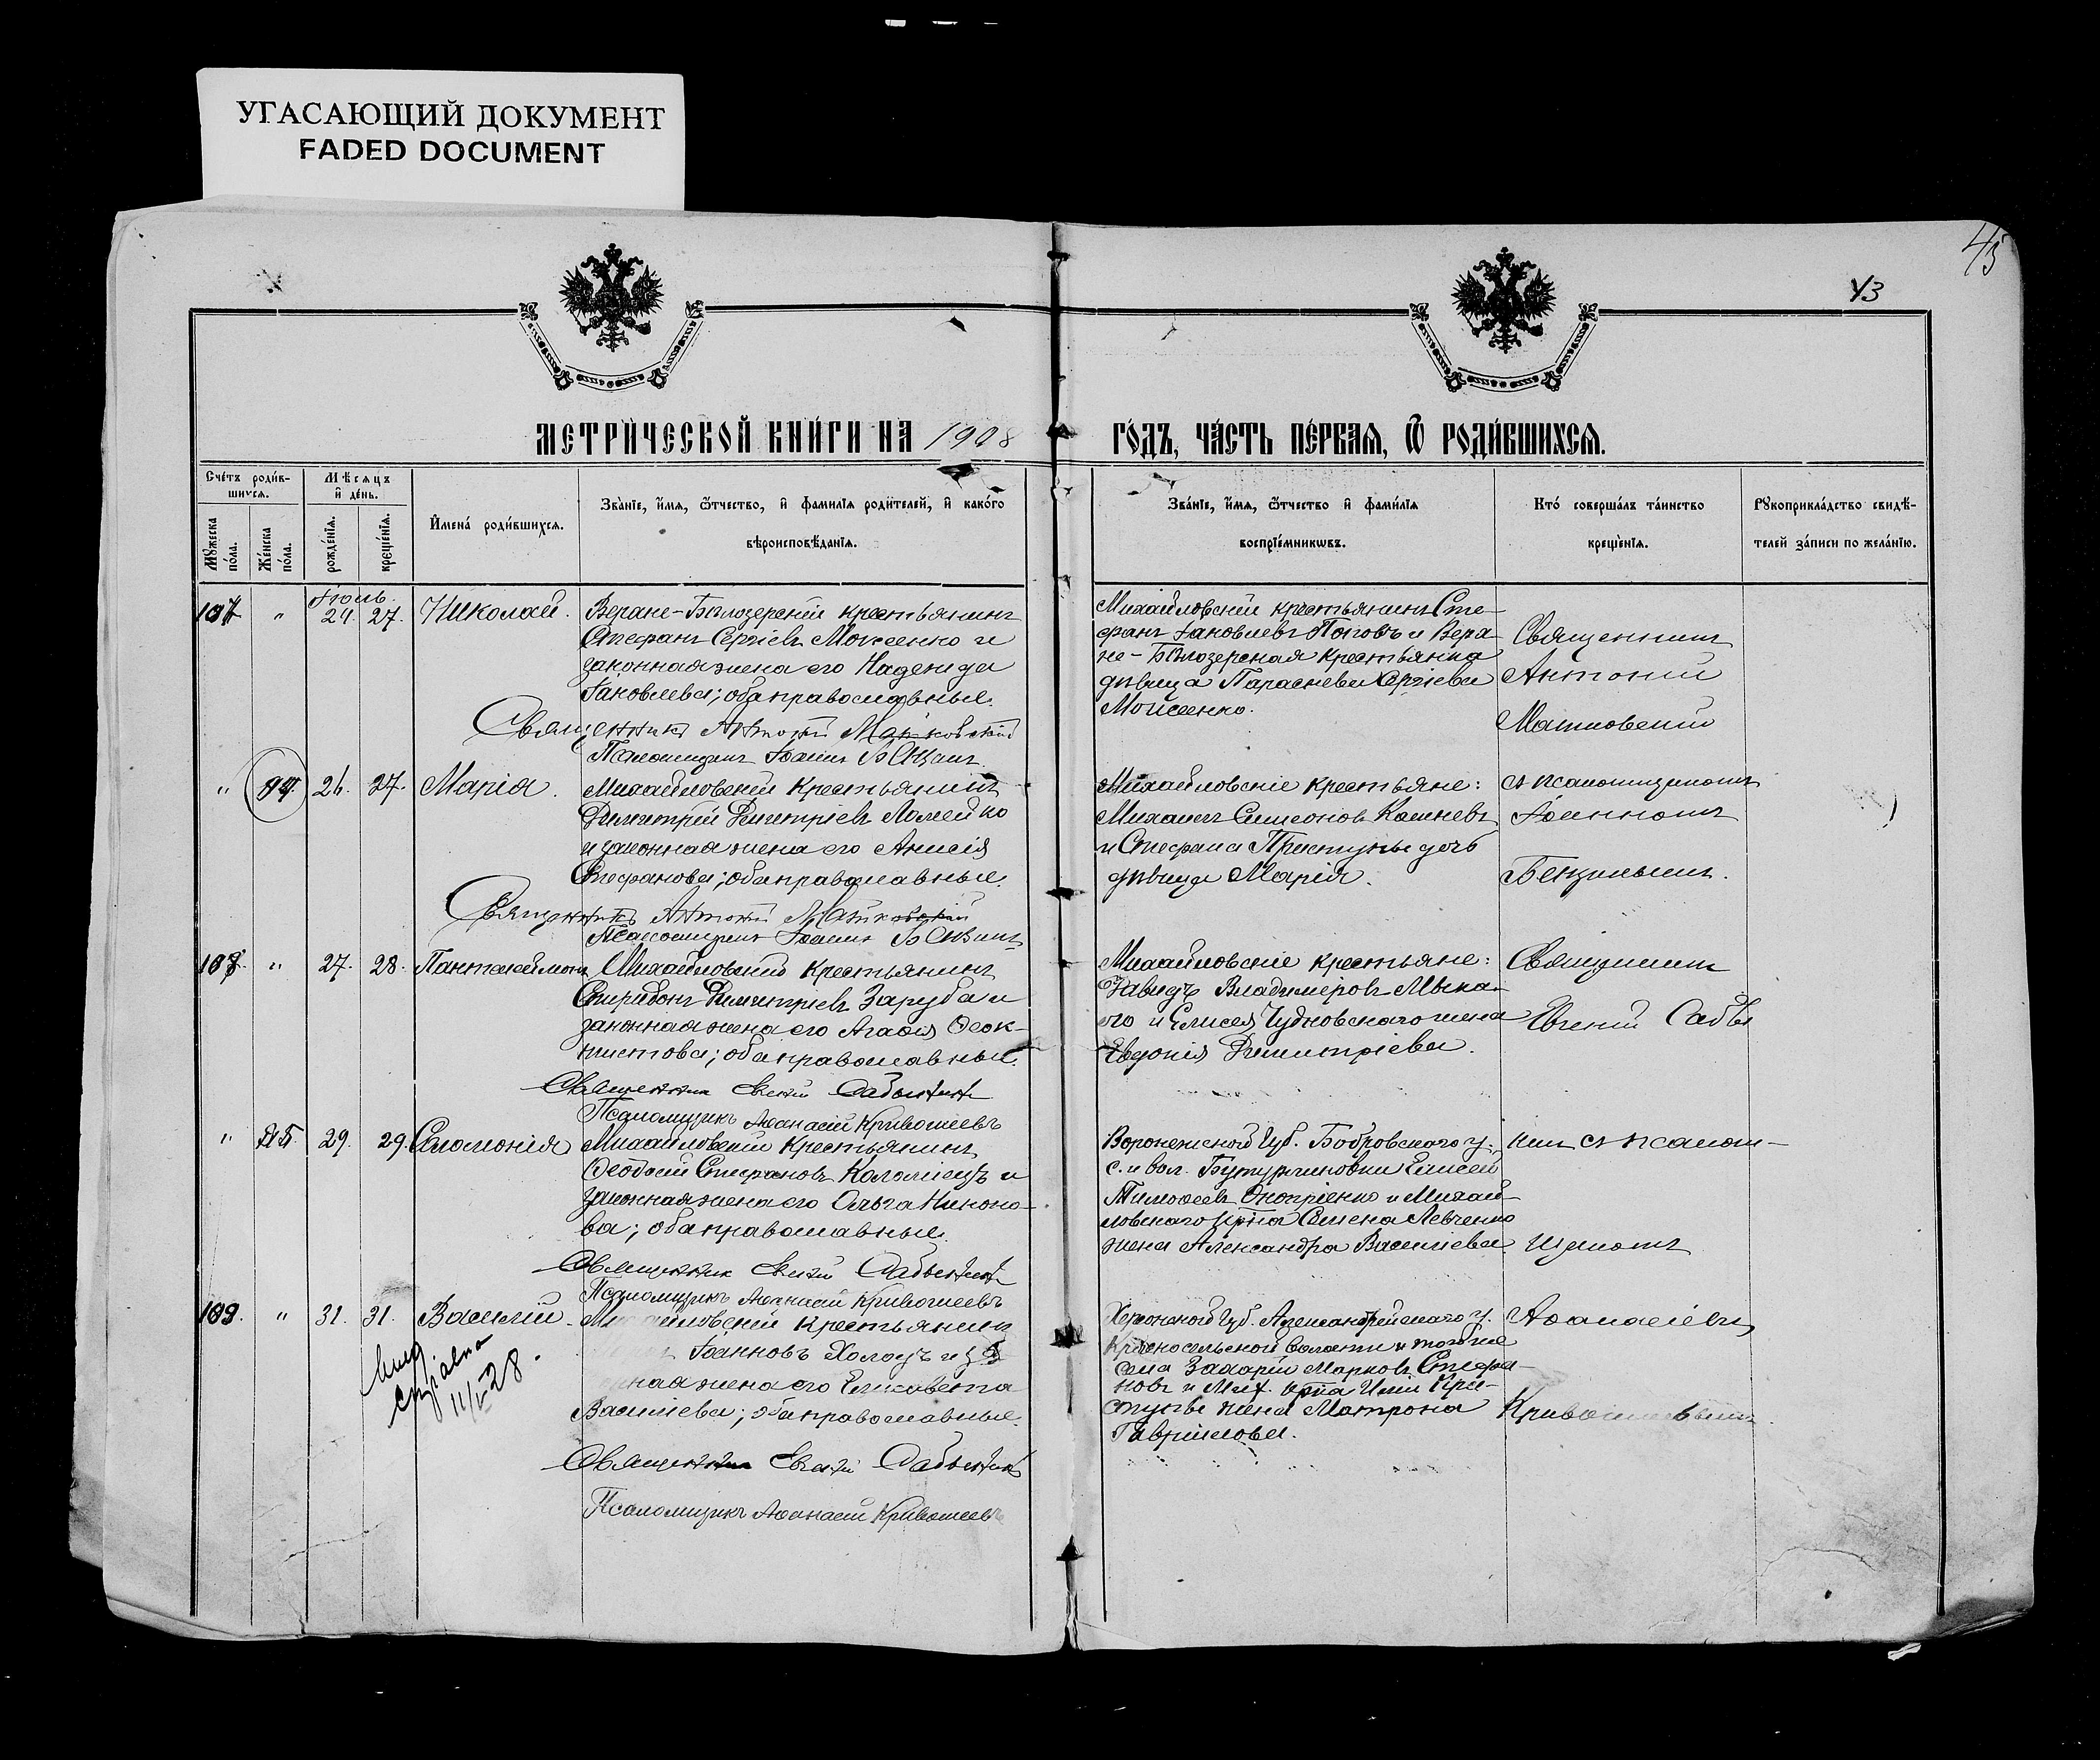 УГАСАЮЩИЙ ДОКУМЕНТ
FADED DOCUMENT
45
43
МЕТРИ́ЧЕСКОЙ КНИ́ГИ НА 1908
ГО́ДЪ, ЧА́СТЬ ПЕ́РВАѦ, Ѿ РОДИ́ВШИХСѦ.
Счетъ роди́в-
шихсѧ.
Мѣсѧцъ
и҆ де́нь.
Мꙋжеска по́ла.
Же́нска по́ла.
рожде́нїѧ.
креще́нїѧ.
И҆мена̀ роди́вшихсѧ.
Зва́нїе, и҆́мѧ, ѻ҆́тчество, и҆ фами́лїѧ роди́телей, и҆ како́го
вѣроисповѣ́данїѧ.
Зва́нїе, и҆́мѧ, ѻ҆́тчество и҆ фами́лїѧ
воспрїе́мникѡвъ.
Кто̀ соверша́лъ та́инство
креще́нїѧ.
Рꙋкоприкла́дство свидѣ́-
телей за́писи по жела́нїю.
Іюль
107 " 24. 27. Николай.
Веране-Бѣлозерскій крестьянинъ
Стефанъ Сергіевъ Моисеенко и
законная жена его Надежда
Іаковлева; оба православные.
Священникъ Антоній Машковскій
Псаломщикъ Іоаннъ Бенцинъ
Михайловскій крестьянинъ Сте-
фанъ Іаковлевъ Поповъ и Вера-
не-Бѣлозерская крестьянка
дѣвица Параскева Сергіева
Моисеенко.
Священникъ
Антоній
Машковскій
" 94 26. 27. Марія.
Михайловскій крестьянинъ
Димитрій Димитріевъ Ломейко
и законная жена его Анисія
Стефанова; оба православные.
Священникъ Антоній Машковскій
Псаломщикъ Іоаннъ Бенцинъ
Михайловскіе крестьяне:
Михаилъ Симеоновъ Кашневъ
и Стефана Приступы дочь
дѣвица Марія.
съ псаломщикомъ
Іоанномъ
Бенцинымъ.
108. " 27. 28. Пантелеймонъ
Михайловскій крестьянинъ
Спиридонъ Димитріевъ Заруба и
законная жена его Агаѳія Ѳеок-
тистова; оба православные.
Священникъ Евгеній
Псаломщикъ Аѳанасій Кривошеевъ
Михайловскіе крестьяне:
Давидъ Владимировъ Мыка-
ло и Елисея Чудновскаго жена
Евдокія Димитріева.
Священникъ
Евгеній
" 95. 29. 29. Соломонія
Михайловскій крестьянинъ
Ѳеодосій Стефановъ Коломіецъ и
законная жена его Ольга Никоно-
ва; оба православные.
Священникъ Евгеній
Псаломщикъ Аѳанасій Кривошеевъ
Воронежской губ. Бобровскаго у.
с. и вол. Бутурлиновки Елисей
Тимоѳеевъ Оноприенко и Михай-
ловскаго кр-на Семена Левченко
жена Александра Василіева
съ псалом-
щикомъ
109. " 31. 31. Василій.
Михайловскій крестьянинъ
Іоанновъ Холодъ и
жена его Елисавета
Василіева; оба православные.
Священникъ Евгеній
Псаломщикъ Аѳанасій Кривошеевъ
11/V 28.
Херсонской губ. Александрійскаго у.
Красносельской волости и того же
села Захарій Марковъ Стефа-
новъ и Мих. кр-на Иліи При-
ступы жена Матрона
Гавриилова.
Аѳанасіемъ
Кривошеевымъ.